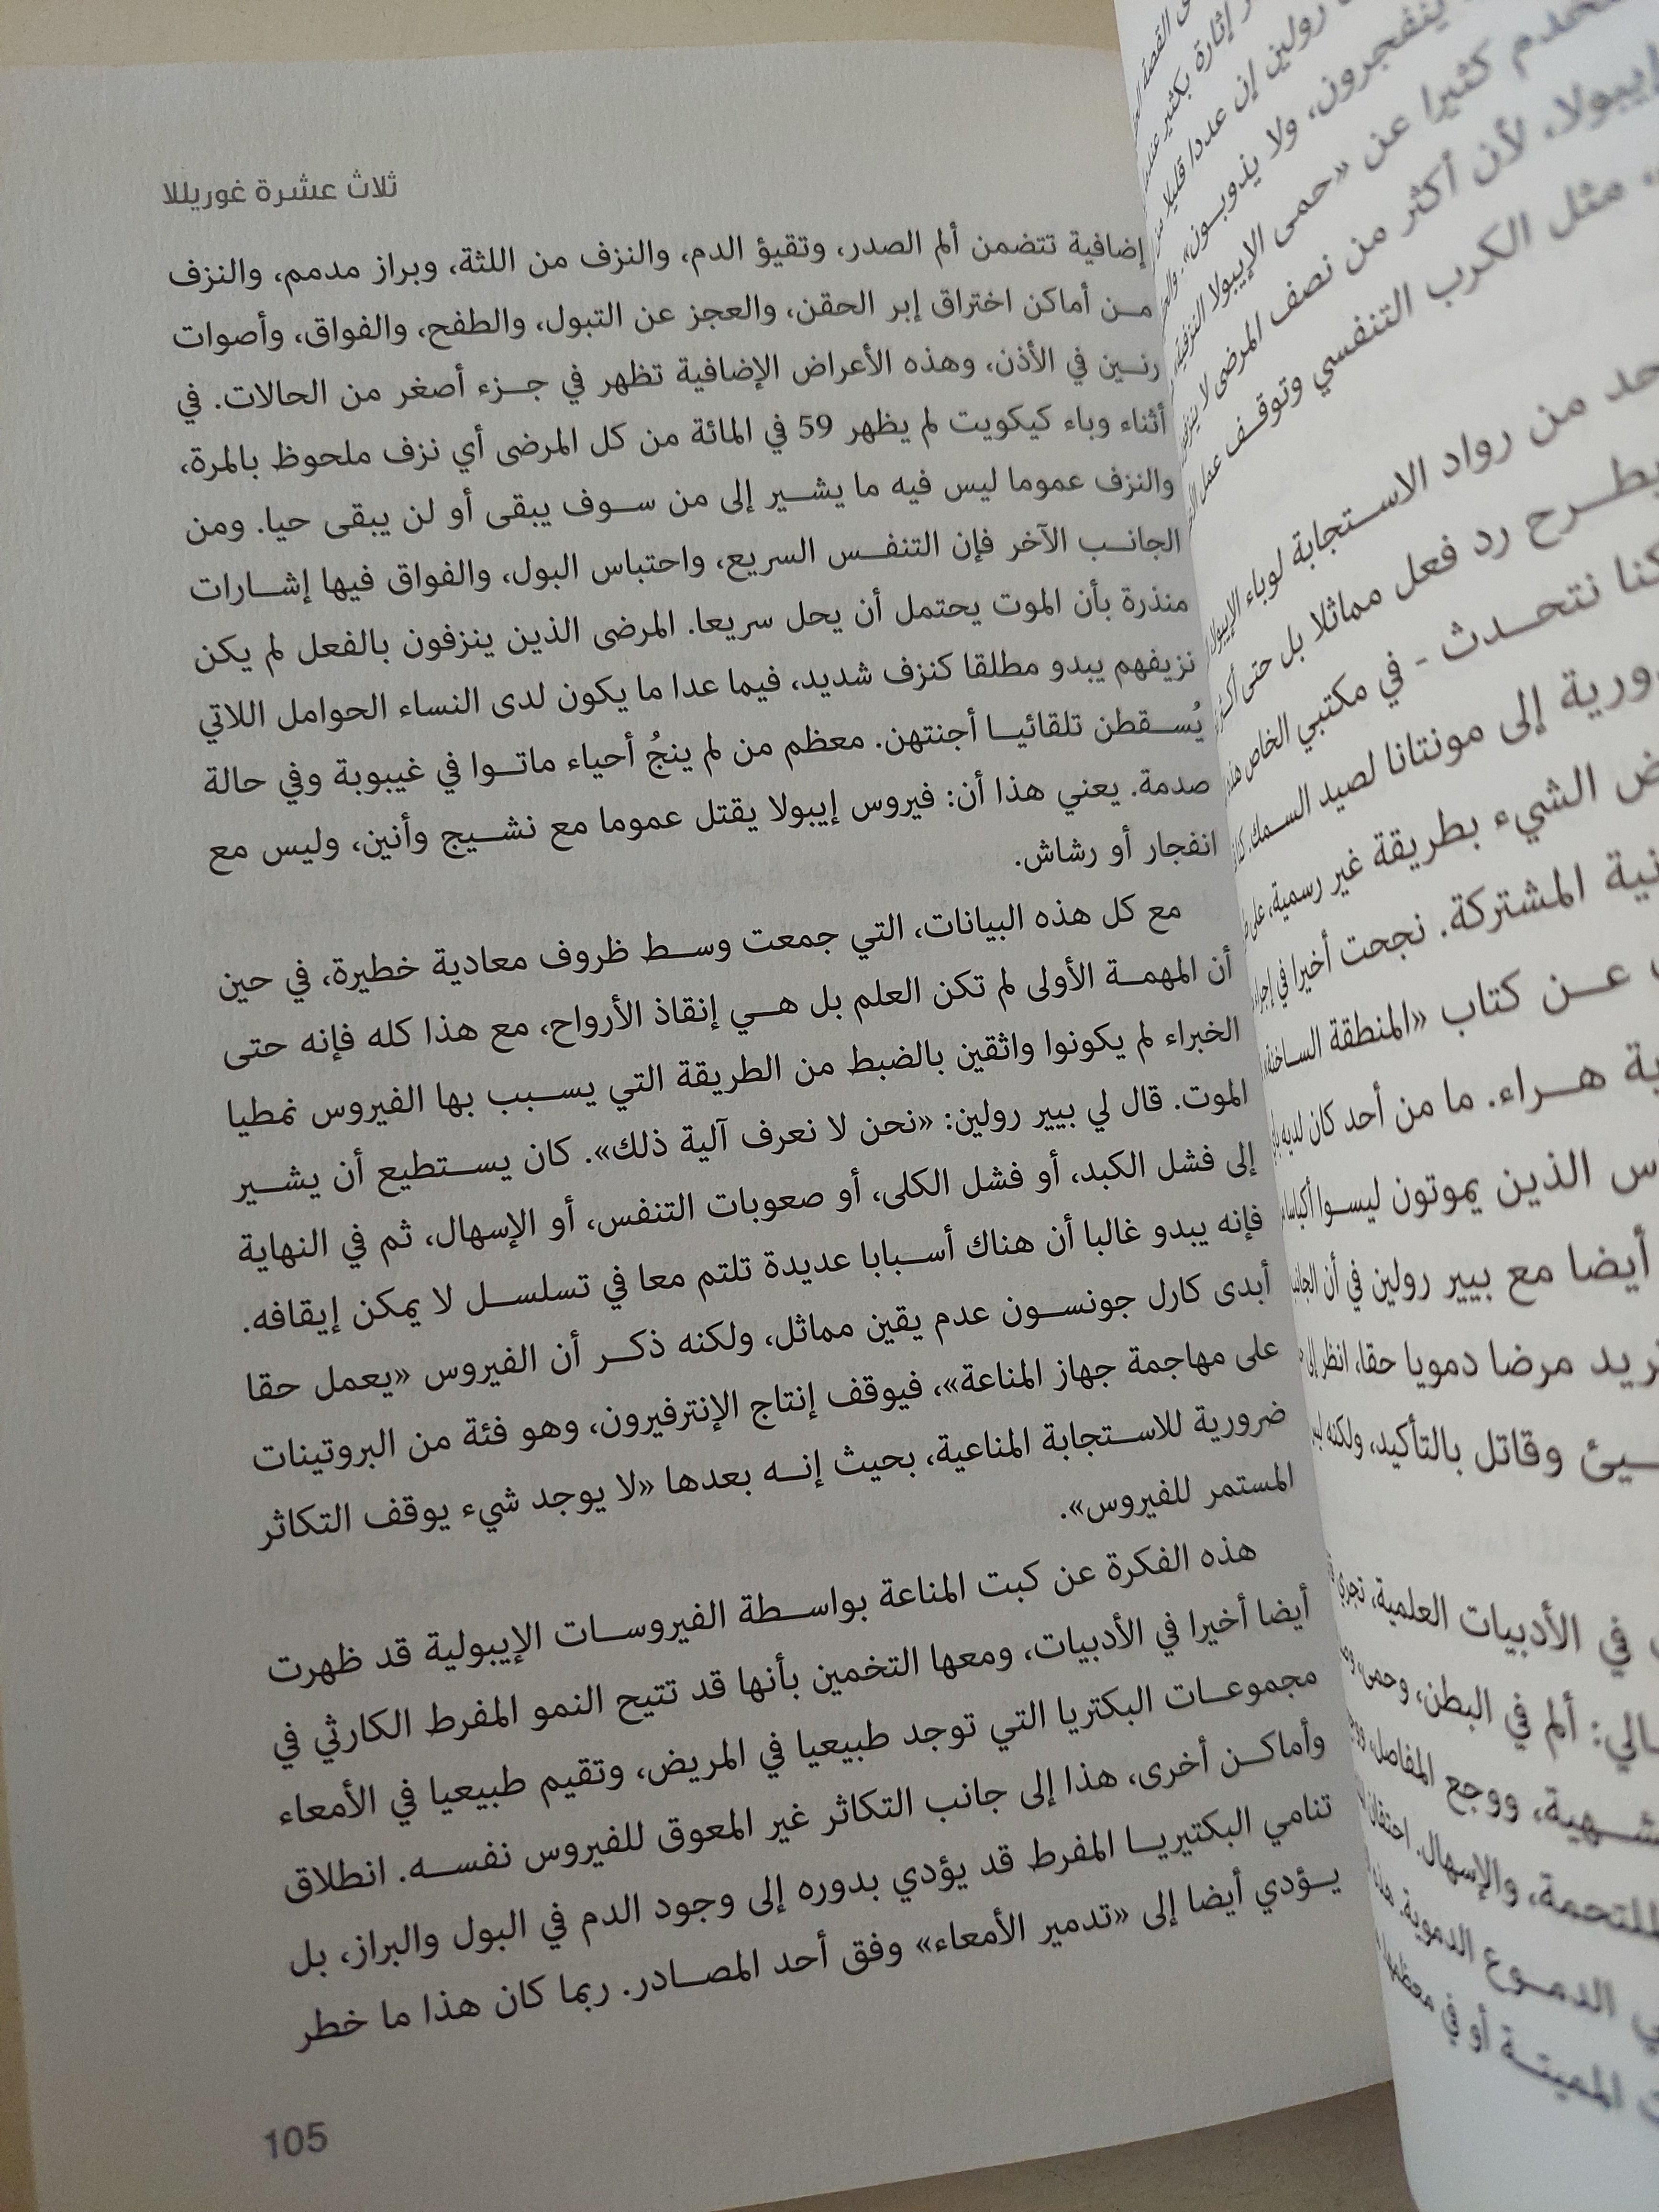 ثلاث عشرة غوريللا
إضافية تتضمن ألم الصدر، وتقيؤ الدم، والنزف من اللثة، وبراز مدمم، والنزف
من أماكن اختراق إبر الحقن، والعجز عن التبول، والطفح، والفواق، وأصوات
رنين في الأذن، وهذه الأعراض الإضافية تظهر في جزء أصغر من الحالات. في
أثناء وباء كيكويت لم يظهر 59 في المائة من كل المرضى أي نزف ملحوظ بالمرة،
والنزف عموما ليس فيه ما يشير إلى من سوف يبقى أو لن يبقى حيا. ومن
الجانب الآخر فإن التنفس السريع، واحتباس البول، والفواق فيها إشارات
منذرة بأن الموت يحتمل أن يحل سريعا. المرضى الذين ينزفون بالفعل لم يكن
نزيفهم يبدو مطلقا كنزف شديد، فيما عدا ما يكون لدى النساء الحوامل اللاتي
يُسقطن تلقائيا أجنتهن. معظم من لم ينجُ أحياء ماتوا في غيبوبة وفي حالة
صدمة. يعني هذا أن: فيروس إيبولا يقتل عموما مع نشيج وأنين، وليس مع
انفجار أو رشاش.
مع كل هذه البيانات، التي جمعت وسط ظروف معادية خطيرة، في حين
أن المهمة الأولى لم تكن العلم بل هي إنقاذ الأرواح، مع هذا كله فإنه حتى
الخبراء لم يكونوا واثقين بالضبط من الطريقة التي يسبب بها الفيروس نمطيا
الموت. قال لي بيير رولين: «نحن لا نعرف آلية ذلك». كان يستطيع أن يشير
إلى فشل الكبد، أو فشل الكلى، أو صعوبات التنفس، أو الإسهال، ثم في النهاية
فإنه يبدو غالبا أن هناك أسبابا عديدة تلتم معا في تسلسل لا يمكن إيقافه.
أبدى كارل جونسون عدم يقين مماثل، ولكنه ذكر أن الفيروس «يعمل حقا
على مهاجمة جهاز المناعة»، فيوقف إنتاج الإنترفيرون، وهو فئة من البروتينات
ضرورية للاستجابة المناعية، بحيث إنه بعدها «لا يوجد شيء يوقف التكاثر
المستمر للفيروس».
هذه الفكرة عن كبت المناعة بواسطة الفيروسات الإيبولية قد ظهرت
أيضا أخيرا في الأدبيات، ومعها التخمين بأنها قد تتيح النمو المفرط الكارثي في
مجموعات البكتريا التي توجد طبيعيا في المريض، وتقيم طبيعيا في الأمعاء
وأماكن أخرى، هذا إلى جانب التكاثر غير المعوق للفيروس نفسه. انطلاق
تنامي البكتيريا المفرط قد يؤدي بدوره إلى وجود الدم في البول والبراز، بل
يؤدي أيضا إلى «تدمير الأمعاء» وفق أحد المصادر. ربما كان هذا ما خطر
105
القصة
إثارة بكثير
رولين إن عددا قليلا
ينفجرون، ولا يذوبون».
كثيرا عن «حمى الإيبولا النزفية
إيبولا، لأن أكثر من نصف المرضى لا
مثل الكرب التنفسي وتوقف عمل
من رواد الاستجابة لوباء الإيبولا
رد فعل مماثلا بل حتى
كنا نتحدث - في مكتبي الخاص
إلى مونتانا لصيد السمك.
الشيء بطريقة غير رسمية،
المشتركة. نجحت أخيرا في
عن كتاب «المنطقة الساخنة»
هراء. ما من أحد كان لديه
الذين يموتون ليسوا
أيضا مع بيير رولين في أن
مرضا دمويا حقا، انظر إلى
وقاتل بالتأكيد، ولكنه
في الأدبيات العلمية، تجري
ألم في البطن، وحمى،
ووجع المفاصل،
والإسهال. احتقان
الدموع الدموية. هذا
أو في معظمها